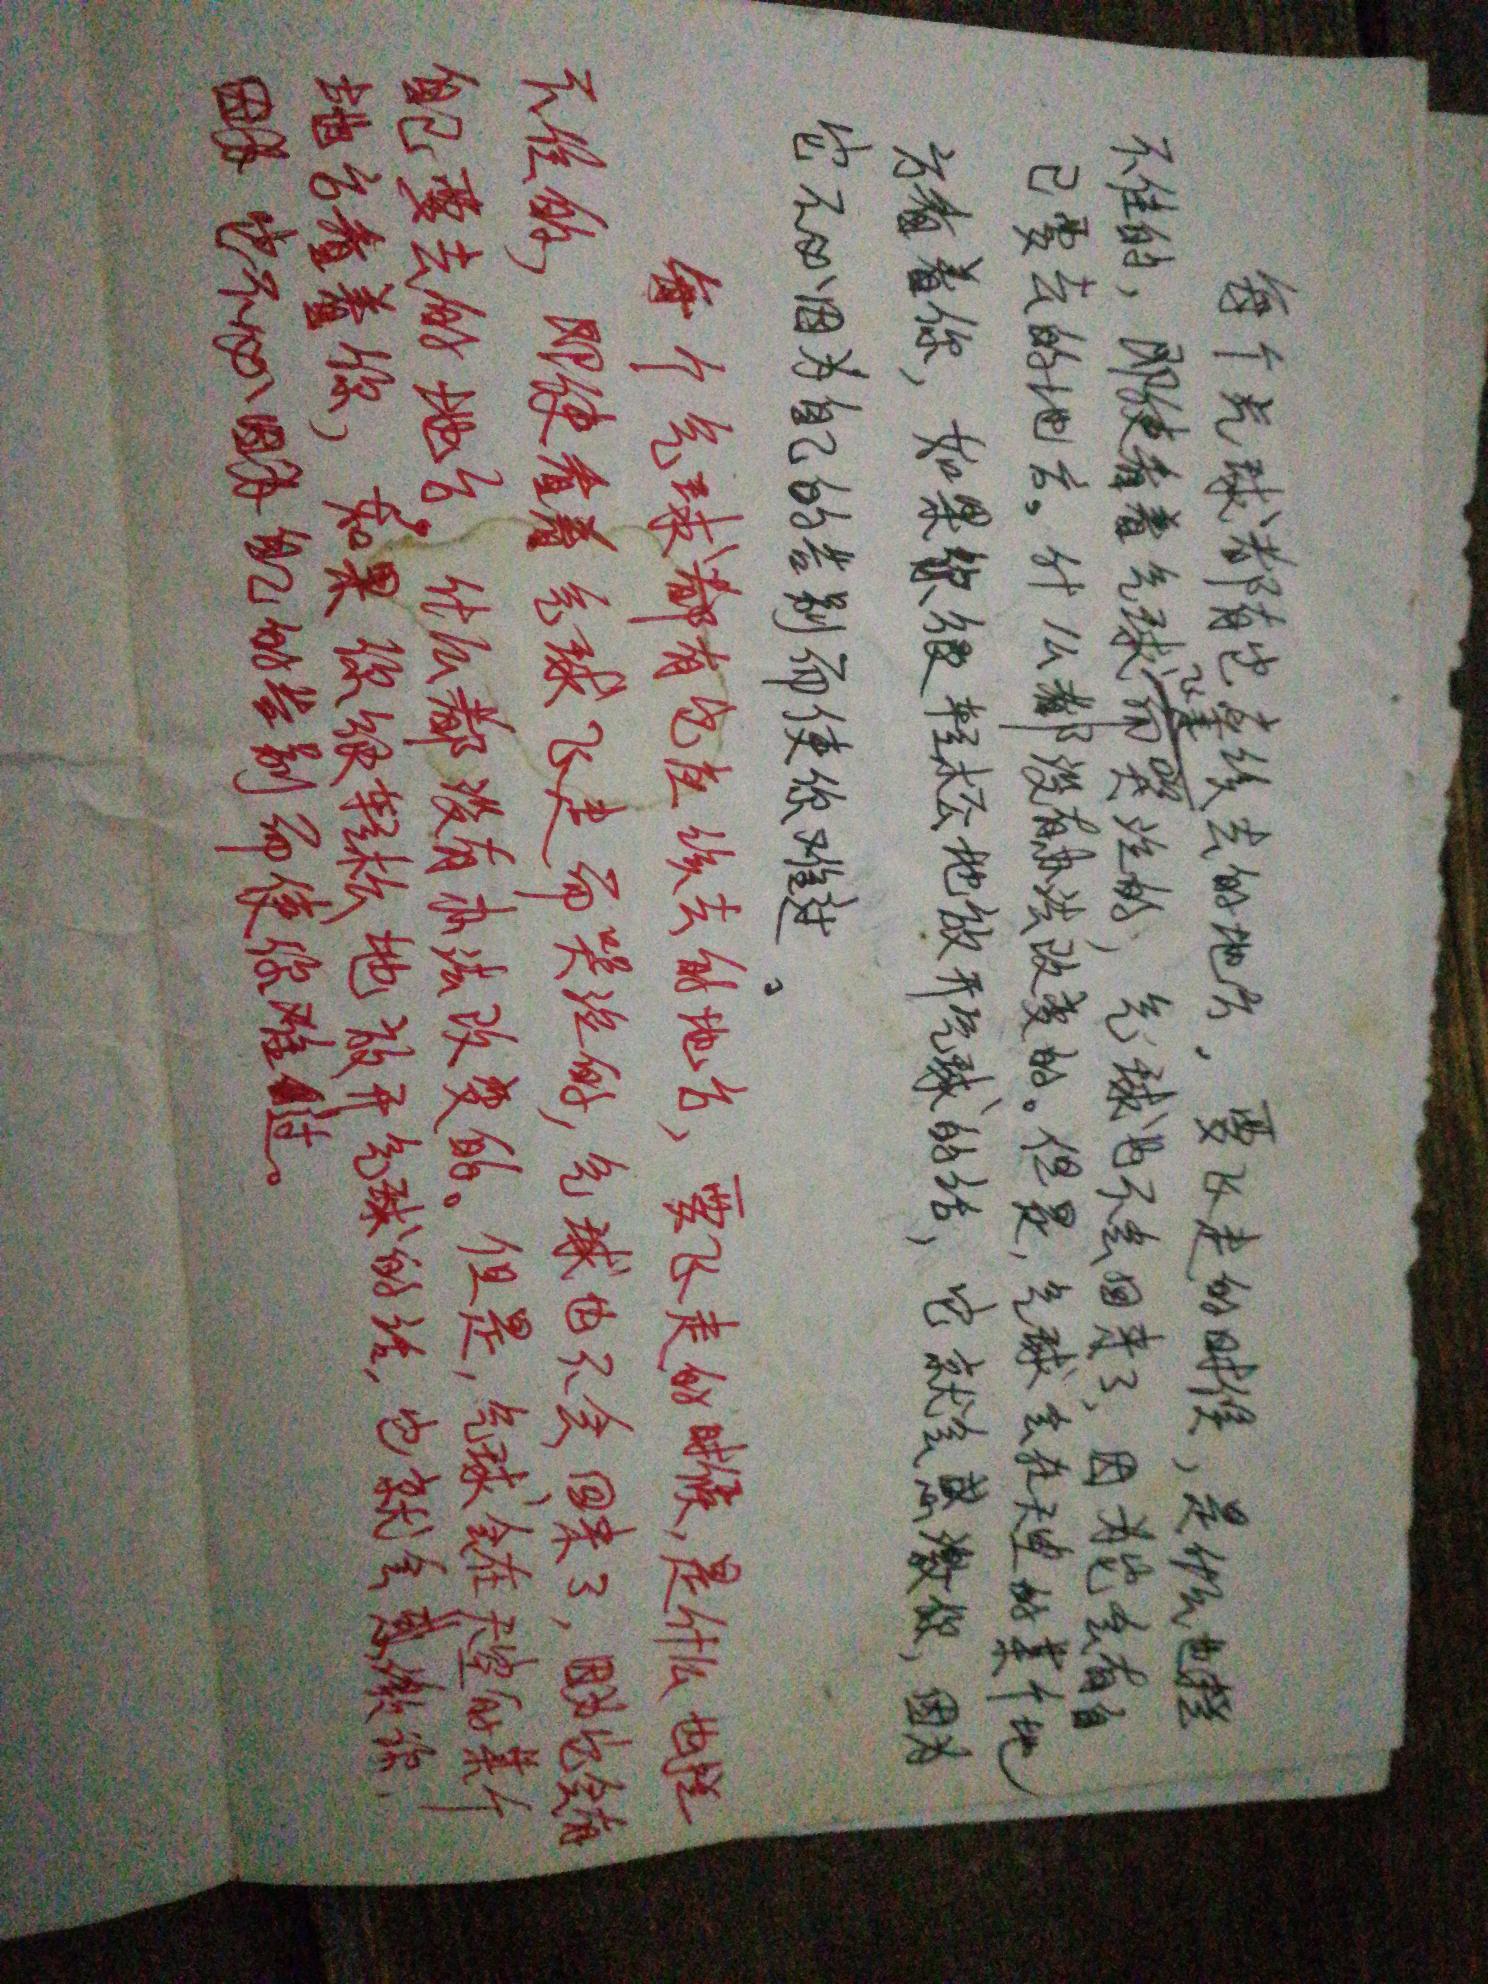 每个气球都有它应该去的地方，要飞走的时候，是什么也拦
不住的，即使看着气球飞走而哭泣的，气球也不会回来了，因为它会有自
己要去的地方。什么都没有办法改变的。但是，气球会在天空的某个地
方看着你，如果你很轻松地放开气球的话，它就会感激你，因为
它不必因为自己的告别而使你难过。
每个气球都有它应该去的地方，要飞走的时候，是什么也拦
不住的，即使看着气球飞走而哭泣的，气球也不会回来了，因为它会有
自己要去的地方。什么都没有办法改变的。但是，气球会在天空的某个
地方看着你，如果你很轻松地放开气球的话，也就会感激你，
因为它不必因为自己的告别而使你难过。